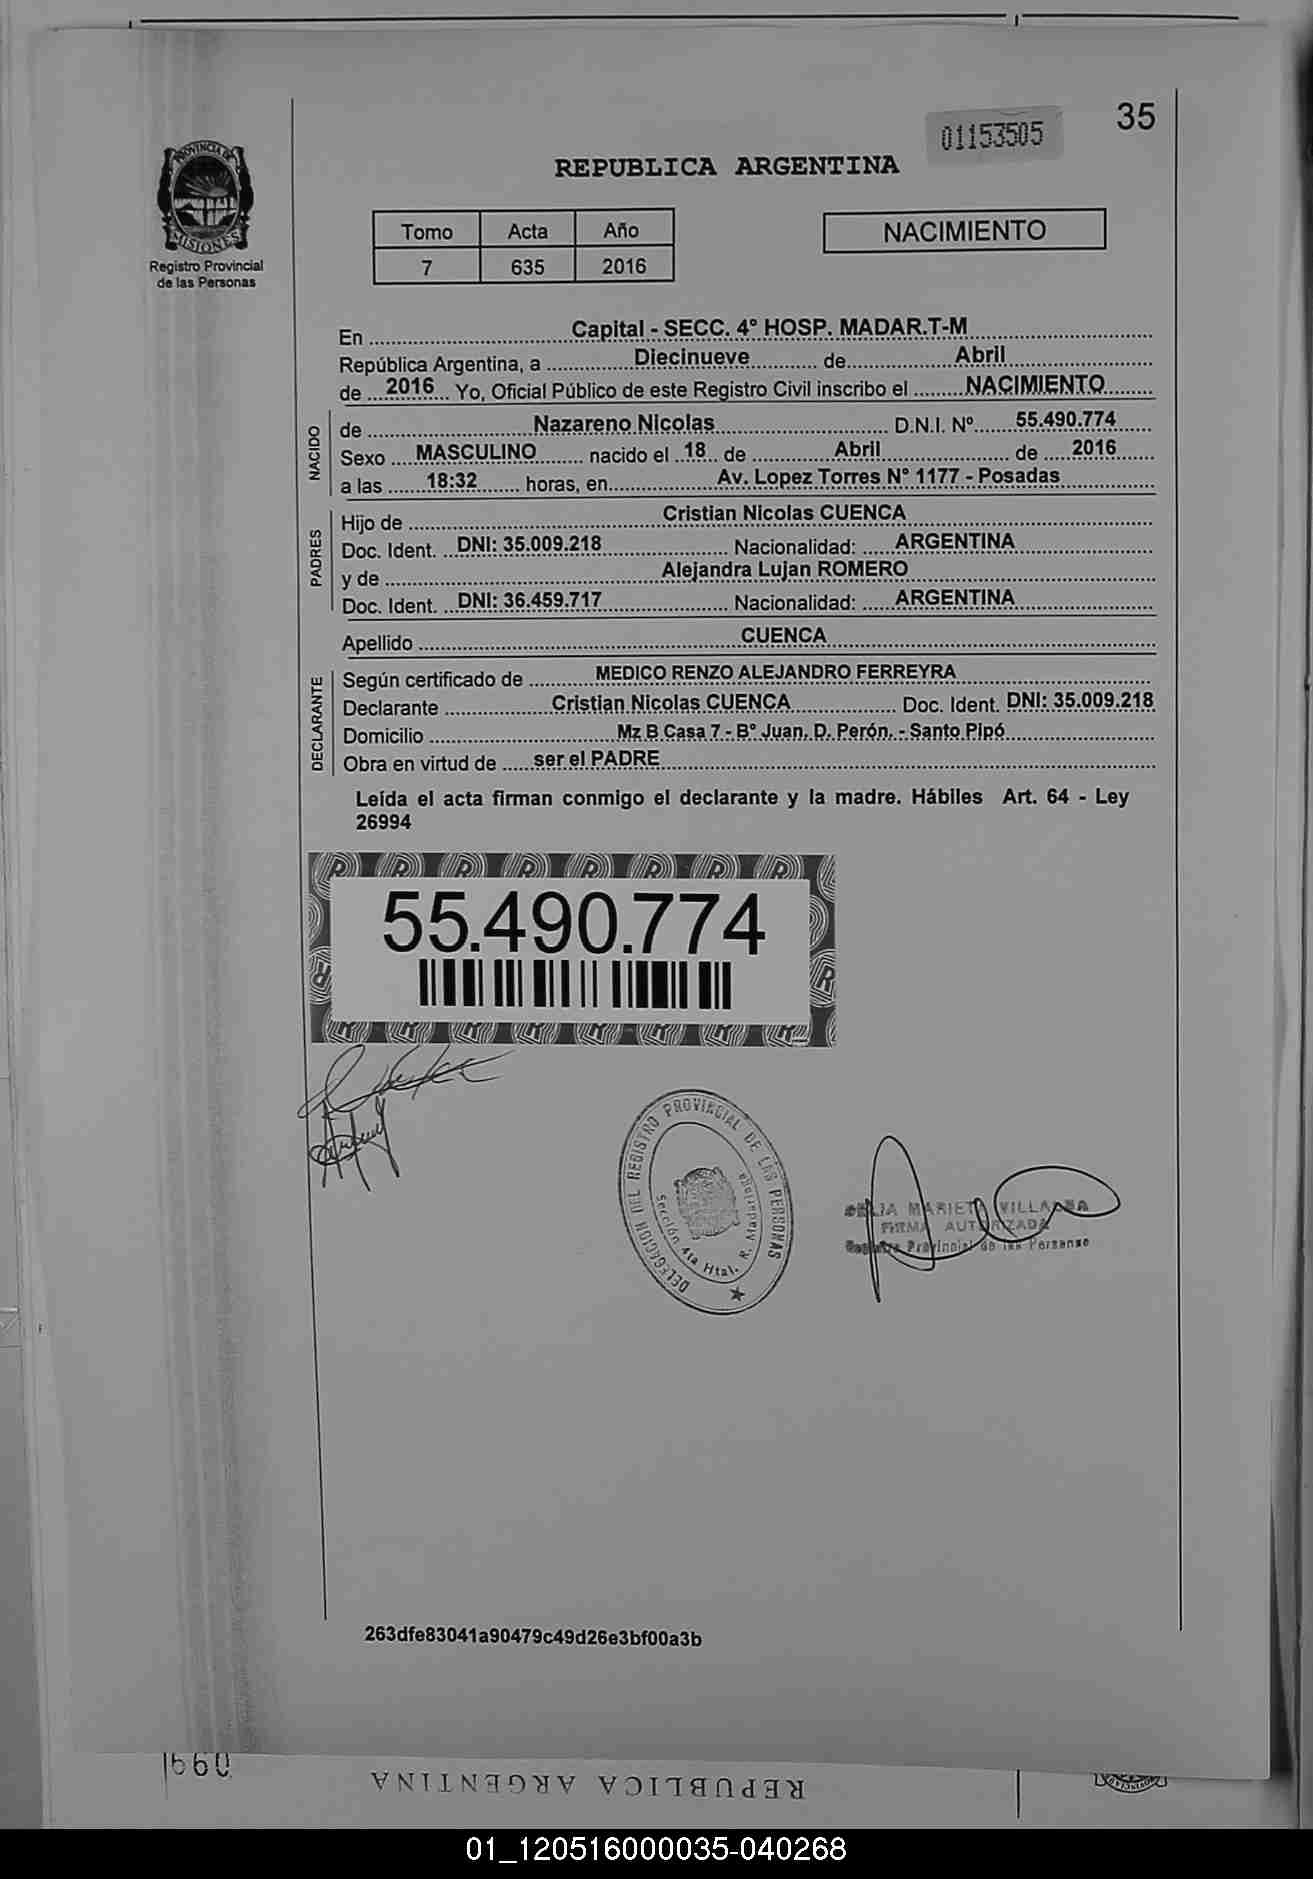 35
01153505
REPUBLICA ARGENTINA
PROVINCIA DE
MISIONES
Registro Provincial
de las Personas
Tomo Acta Año
7 635 2016
NACIMIENTO
En Capital - SECC. 4° HOSP. MADAR.T-M
República Argentina, a Diecinueve de Abril
de 2016 Yo, Oficial Público de este Registro Civil inscribo el NACIMIENTO
NACIDO
de Nazareno Nicolas D.N.I. Nº 55.490.774
Sexo MASCULINO nacido el 18 de Abril de 2016
a las 18:32 horas, en Av. Lopez Torres N° 1177 - Posadas
PADRES
Hijo de Cristian Nicolas CUENCA
Doc. Ident. DNI: 35.009.218 Nacionalidad: ARGENTINA
y de Alejandra Lujan ROMERO
Doc. Ident. DNI: 36.459.717 Nacionalidad: ARGENTINA
Apellido CUENCA
DECLARANTE
Según certificado de MEDICO RENZO ALEJANDRO FERREYRA
Declarante Cristian Nicolas CUENCA Doc. Ident. DNI: 35.009.218
Domicilio Mz B Casa 7 - B° Juan. D. Perón. - Santo Pipó
Obra en virtud de ser el PADRE
Leída el acta firman conmigo el declarante y la madre. Hábiles Art. 64 - Ley
26994
55.490.774
DELEGACION DEL REGISTRO PROVINCIAL DE LAS PERSONAS
Sección 4ta Htal. R. Madariaga
MARIETA VILLALBA
FIRMA AUTORIZADA
Registro Provincial de las Personas
263dfe83041a90479c49d26e3bf00a3b
REPUBLICA ARGENTINA
01_120516000035-040268